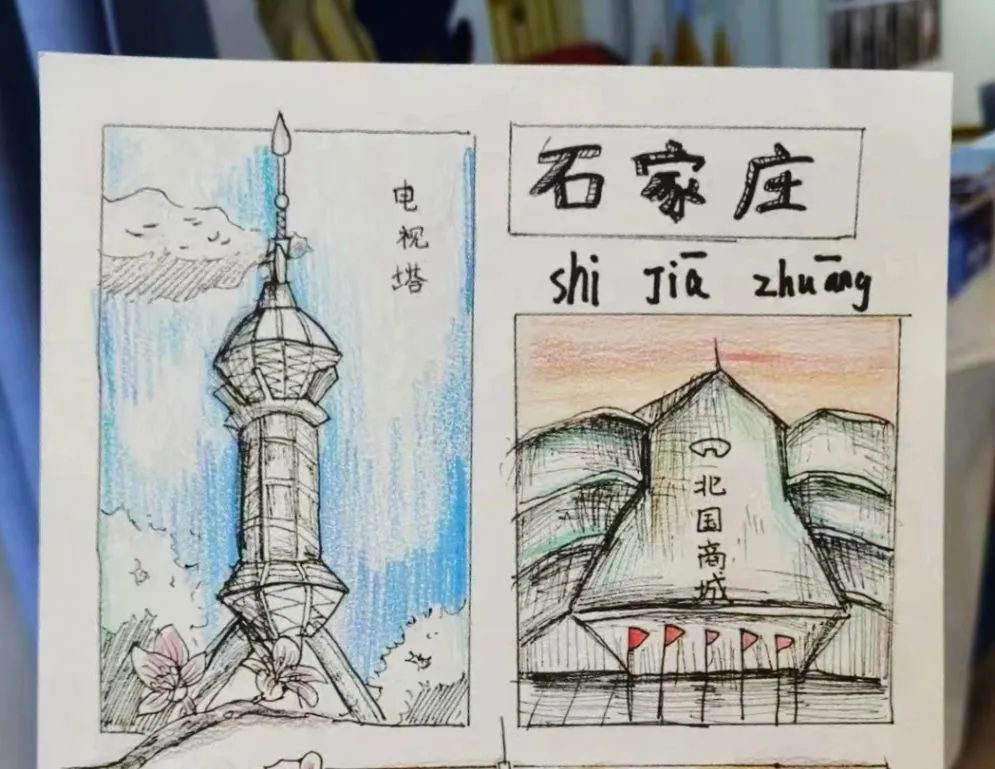 电视塔
石家庄
shi Jiā zhuāng
北国商城